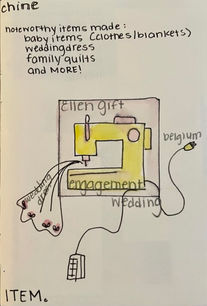 chine
noteworthy items made:
baby items (clothes/blankets)
weddingdress
family quilts
and MORE!
Ellen gift
belgium
engagement
wedding
wedding
ITEM.